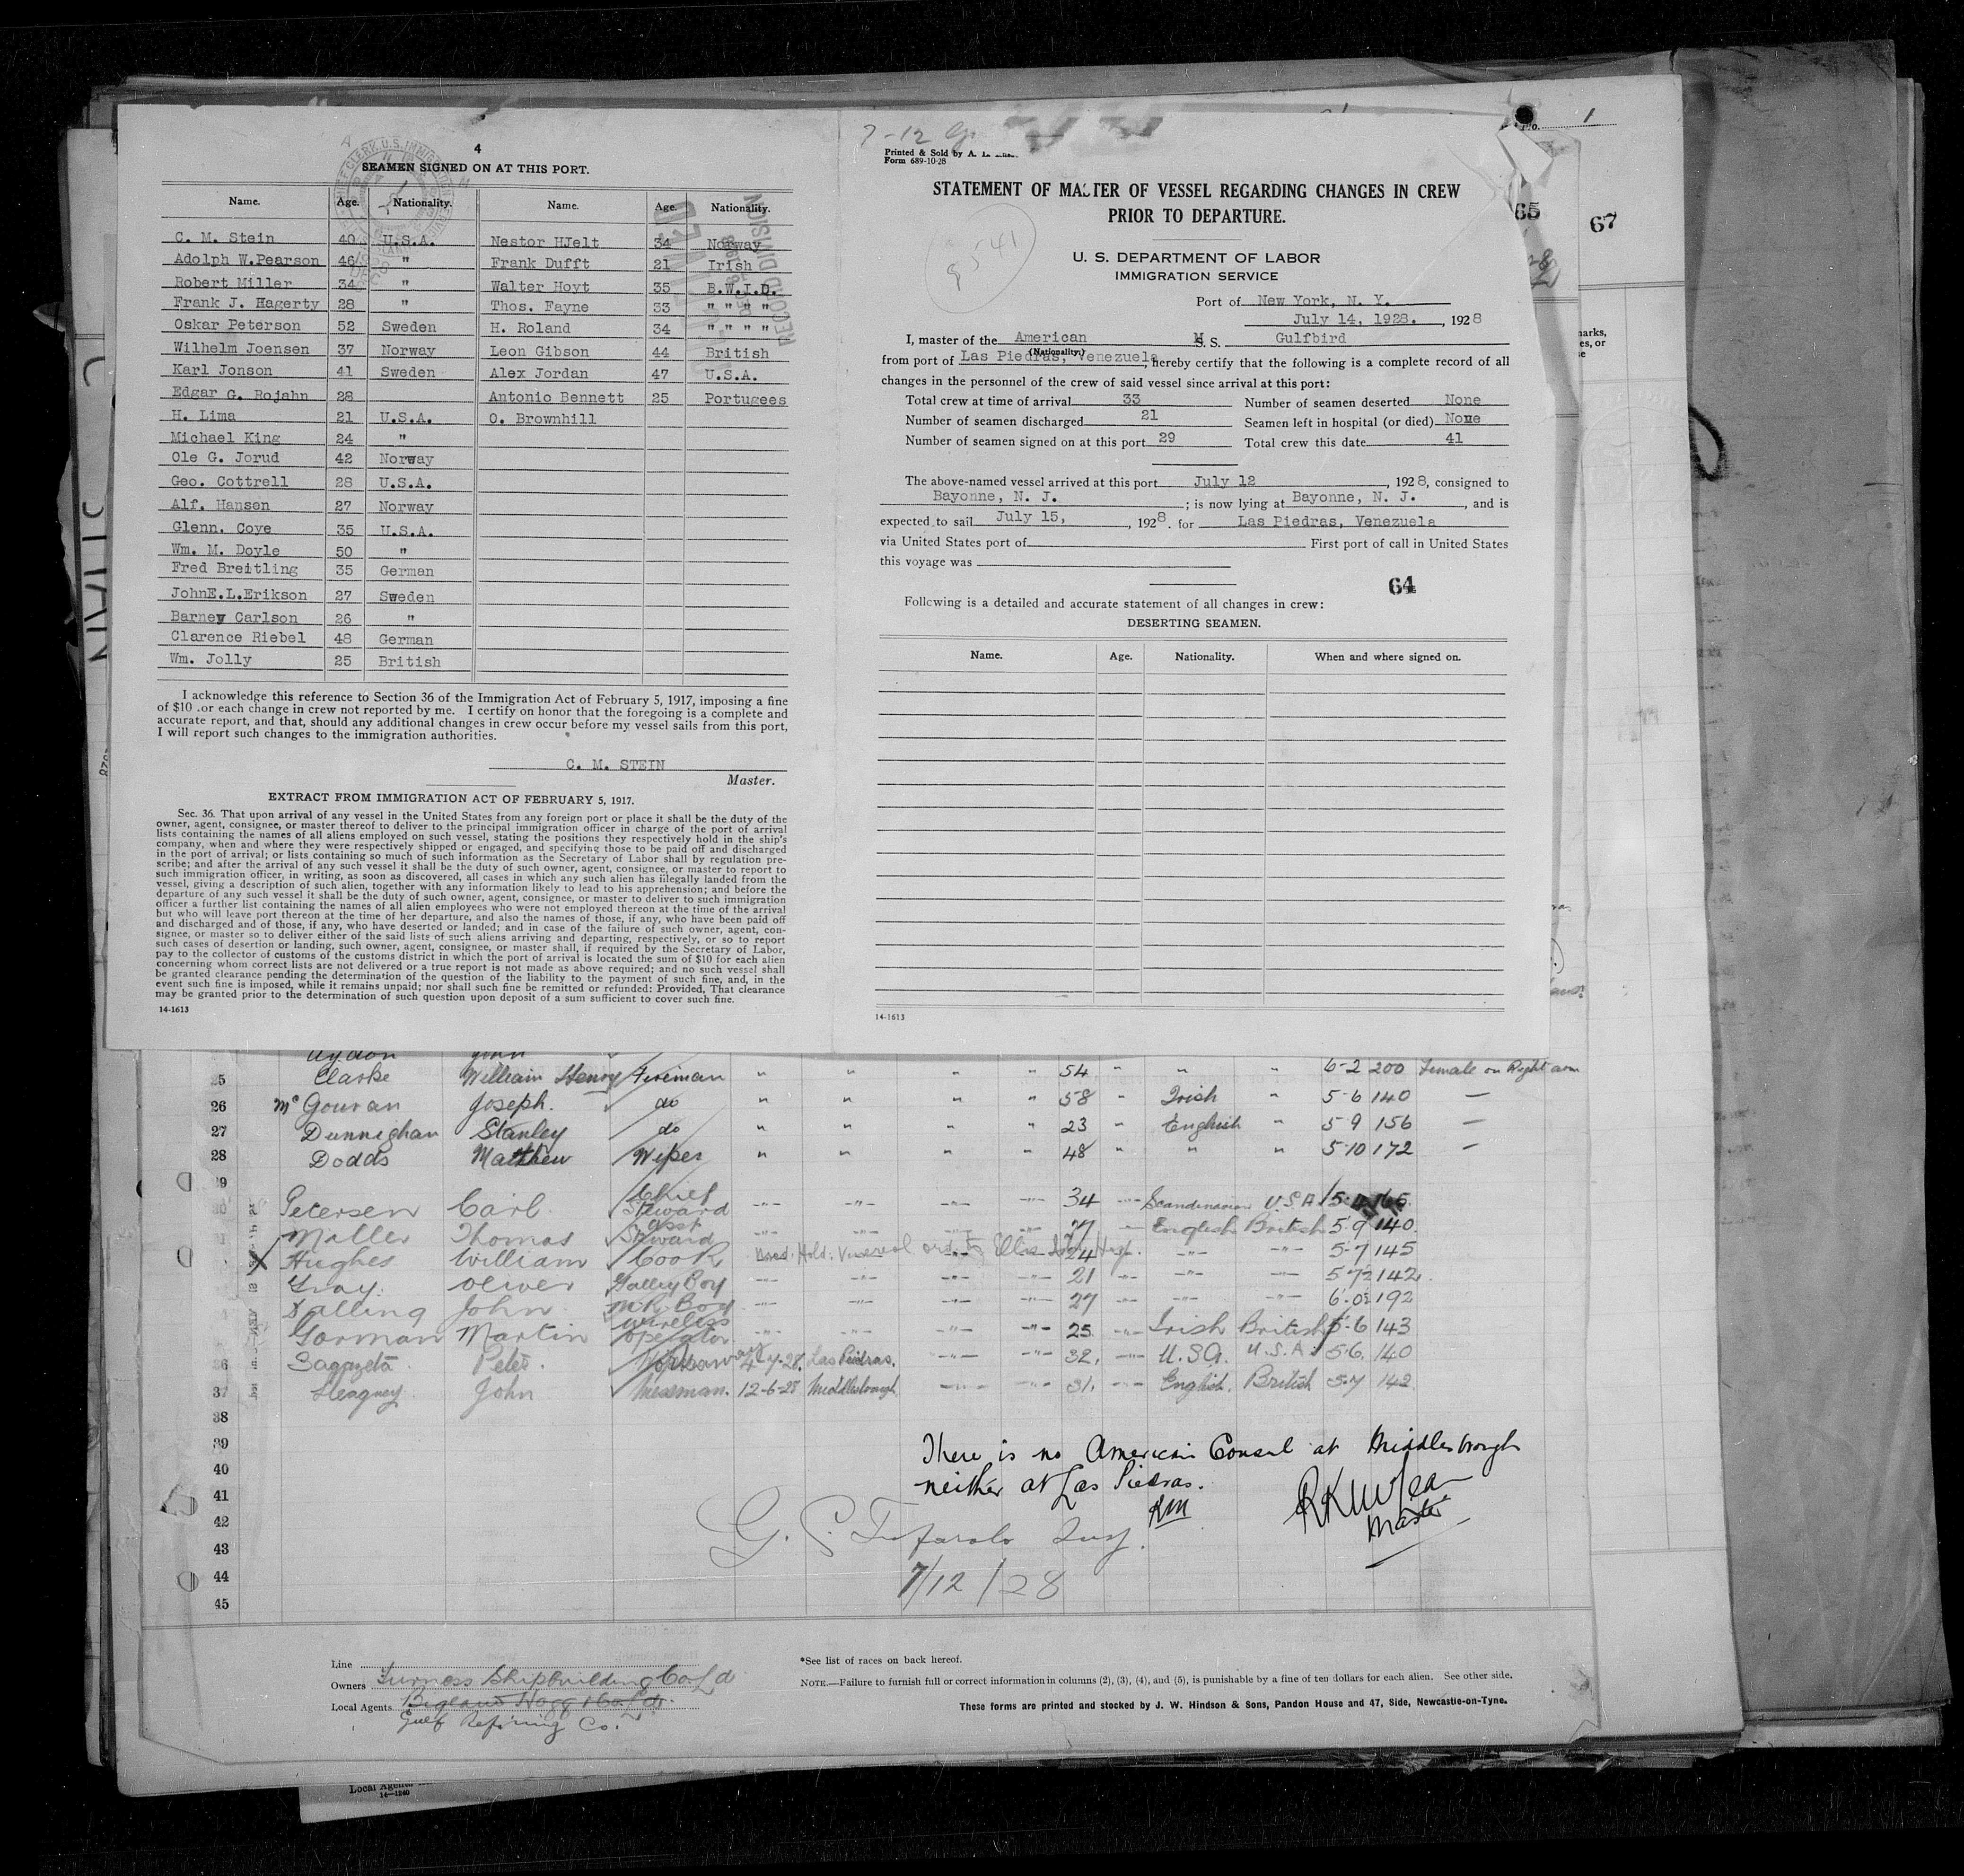 4
SEAMEN SIGNED ON AT THIS PORT.
Name. Age. Nationality. Name. Age. Nationality.
C. M. Stein 40 U.S.A. Nestor HJelt 34 Norway
Adolph W.Pearson 46 " Frank Dufft 21 Irish
Robert Miller 34 " Walter Hoyt 35 B.W.I.D.
Frank J. Hagerty 28 " Thos. Fayne 33 " " " "
Oskar Peterson 52 Sweden H. Roland 34 " " " "
Wilhelm Joensen 37 Norway Leon Gibson 44 British
Karl Jonson 41 Sweden Alex Jordan 47 U.S.A.
Edgar G. Rojahn 28 Antonio Bennett 25 Portugees
H. Lima 21 U.S.A. O. Brownhill
Michael King 24 "
Ole G. Jorud 42 Norway
Geo. Cottrell 28 U.S.A.
Alf. Hansen 27 Norway
Glenn. Coye 35 U.S.A.
Wm. M. Doyle 50 "
Fred Breitling 35 German
JohnE.L.Erikson 27 Sweden
Barney Carlson 26 "
Clarence Riebel 48 German
Wm. Jolly 25 British
I acknowledge this reference to Section 36 of the Immigration Act of February 5, 1917, imposing a fine
of $10 .or each change in crew not reported by me. I certify on honor that the foregoing is a complete and
accurate report, and that, should any additional changes in crew occur before my vessel sails from this port,
I will report such changes to the immigration authorities.
C. M. STEIN
Master.
EXTRACT FROM IMMIGRATION ACT OF FEBRUARY 5, 1917.
Sec. 36. That upon arrival of any vessel in the United States from any foreign port or place it shall be the duty of the
owner, agent, consignee, or master thereof to deliver to the principal immigration officer in charge of the port of arrival
lists containing the names of all aliens employed on such vessel, stating the positions they respectively hold in the ship's
company, when and where they were respectively shipped or engaged, and specifying those to be paid off and discharged
in the port of arrival; or lists containing so much of such information as the Secretary of Labor shall by regulation pre-
scribe; and after the arrival of any such vessel it shall be the duty of such owner, agent, consignee, or master to report to
such immigration officer, in writing, as soon as discovered, all cases in which any such alien has illegally landed from the
vessel, giving a description of such alien, together with any information likely to lead to his apprehension; and before the
departure of any such vessel it shall be the duty of such owner, agent, consignee, or master to deliver to such immigration
officer a further list containing the names of all alien employees who were not employed thereon at the time of the arrival
but who will leave port thereon at the time of her departure, and also the names of those, if any, who have been paid off
and discharged and of those, if any, who have deserted or landed; and in case of the failure of such owner, agent, con-
signee, or master so to deliver either of the said lists of such aliens arriving and departing, respectively, or so to report
such cases of desertion or landing, such owner, agent, consignee, or master shall, if required by the Secretary of Labor,
pay to the collector of customs of the customs district in which the port of arrival is located the sum of $10 for each alien
concerning whom correct lists are not delivered or a true report is not made as above required; and no such vessel shall
be granted clearance pending the determination of the question of the liability to the payment of such fine, and, in the
event such fine is imposed, while it remains unpaid; nor shall such fine be remitted or refunded: Provided, That clearance
may be granted prior to the determination of such question upon deposit of a sum sufficient to cover such fine.
14-1613
7-12
Printed & Sold by A.
Form 689-10-28
No. 1
STATEMENT OF MASTER OF VESSEL REGARDING CHANGES IN CREW
PRIOR TO DEPARTURE.
65
67
8541
U. S. DEPARTMENT OF LABOR
IMMIGRATION SERVICE
Port of New York, N. Y.
July 14, 1928. , 1928
I, master of the American S. S. Gulfbird
(Nationality)
from port of Las Piedras, Venezuela, hereby certify that the following is a complete record of all
changes in the personnel of the crew of said vessel since arrival at this port:
Total crew at time of arrival 33 Number of seamen deserted None
Number of seamen discharged 21 Seamen left in hospital (or died) None
Number of seamen signed on at this port 29 Total crew this date 41
The above-named vessel arrived at this port July 12 , 1928, consigned to
Bayonne, N. J. ; is now lying at Bayonne, N. J. , and is
expected to sail July 15, , 1928. for Las Piedras, Venezuela
via United States port of First port of call in United States
this voyage was
64
Following is a detailed and accurate statement of all changes in crew:
DESERTING SEAMEN.
Name. Age. Nationality. When and where signed on.
14-1613
25 Clarke William Henry Fireman " " " " 54 " " " 6-2 200 Female on Right arm
26 McGouran Joseph. do " " " " 58 " Irish " 5-6 140 —
27 Dunnighan Stanley do " " " " 23 " English " 5-9 156 —
28 Dodds Matthew Wiper " " " " 48 " " " 5-10 172 —
29
30 Petersen Carl Chief Steward " " " " 34 " Scandinavian U.S.A.
Miller Thomas asst Steward " " " " " English British 5-9 140
X Hughes William Cook 24 " " " 5-7 145
Gray Oliver Galley Boy " " " " 21 " " " 142
Dalling John M.R. Boy " " " " 27 " " " 192
Gorman Martin wireless operator " " " " 25 " Irish British 5-6 143
36 Zagazeta Peter. 4-7-28. Las Piedras. " " 32. " U.S.A. U.S.A. 5-6. 140
37 Heagney John Messman. 12-6-28 Middlesbrough " " 31. " English. British 5-7 142
38
39
40
41
42
43
44
45
There is no American Consul at Middlesbrough
neither at Las Piedras.
Master
7/12/28
Line
Owners Furness Shipbuilding Co. Ld
Local Agents
Gulf Refining Co.
*See list of races on back hereof.
NOTE.—Failure to furnish full or correct information in columns (2), (3), (4), and (5), is punishable by a fine of ten dollars for each alien. See other side.
These forms are printed and stocked by J. W. Hindson & Sons, Pandon House and 47, Side, Newcastle-on-Tyne.
Local Agents
14-1240